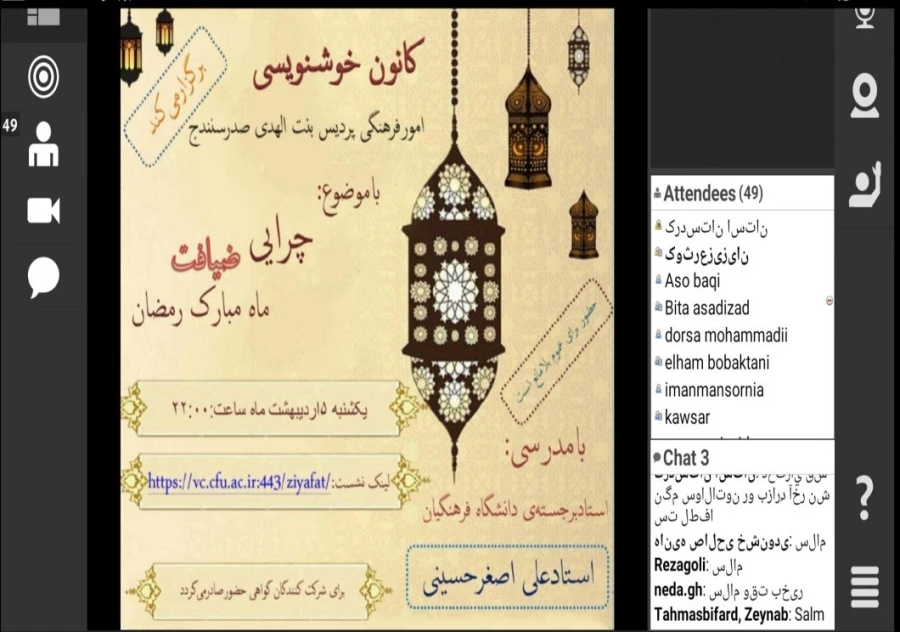 49
کانون خوشنویسی
برگزار می کند
امور فرهنگی پردیس بنت الهدی صدر سنندج
با موضوع:
چرایی ضیافت
ماه مبارک رمضان
حضور برای عموم بلامانع است
یکشنبه ۵اردیبهشت ماه ساعت:۲۲:۰۰
لینک نشست:https://vc.cfu.ac.ir:443/ziyafat/
با مدرسی:
استاد برجسته‌ی دانشگاه فرهنگیان
استاد علی اصغر حسینی
برای شرکت کنندگان گواهی حضور صادر می گردد
Attendees (49)
ناتسا ناتسدرک
نایزیزعرثوک
Aso baqi
Bita asadizad
dorsa mohammadii
elham bobaktani
imanmansornia
kawsar
Chat 3
نش رخآ رد‌ازب ور نوتالاوس نگم
افطل تس
یدونشخ یحلاص هیناه: مالس
Rezagoli: مالس
neda.gh: ریخب تقو مالس
Tahmasbifard, Zeynab: Salm